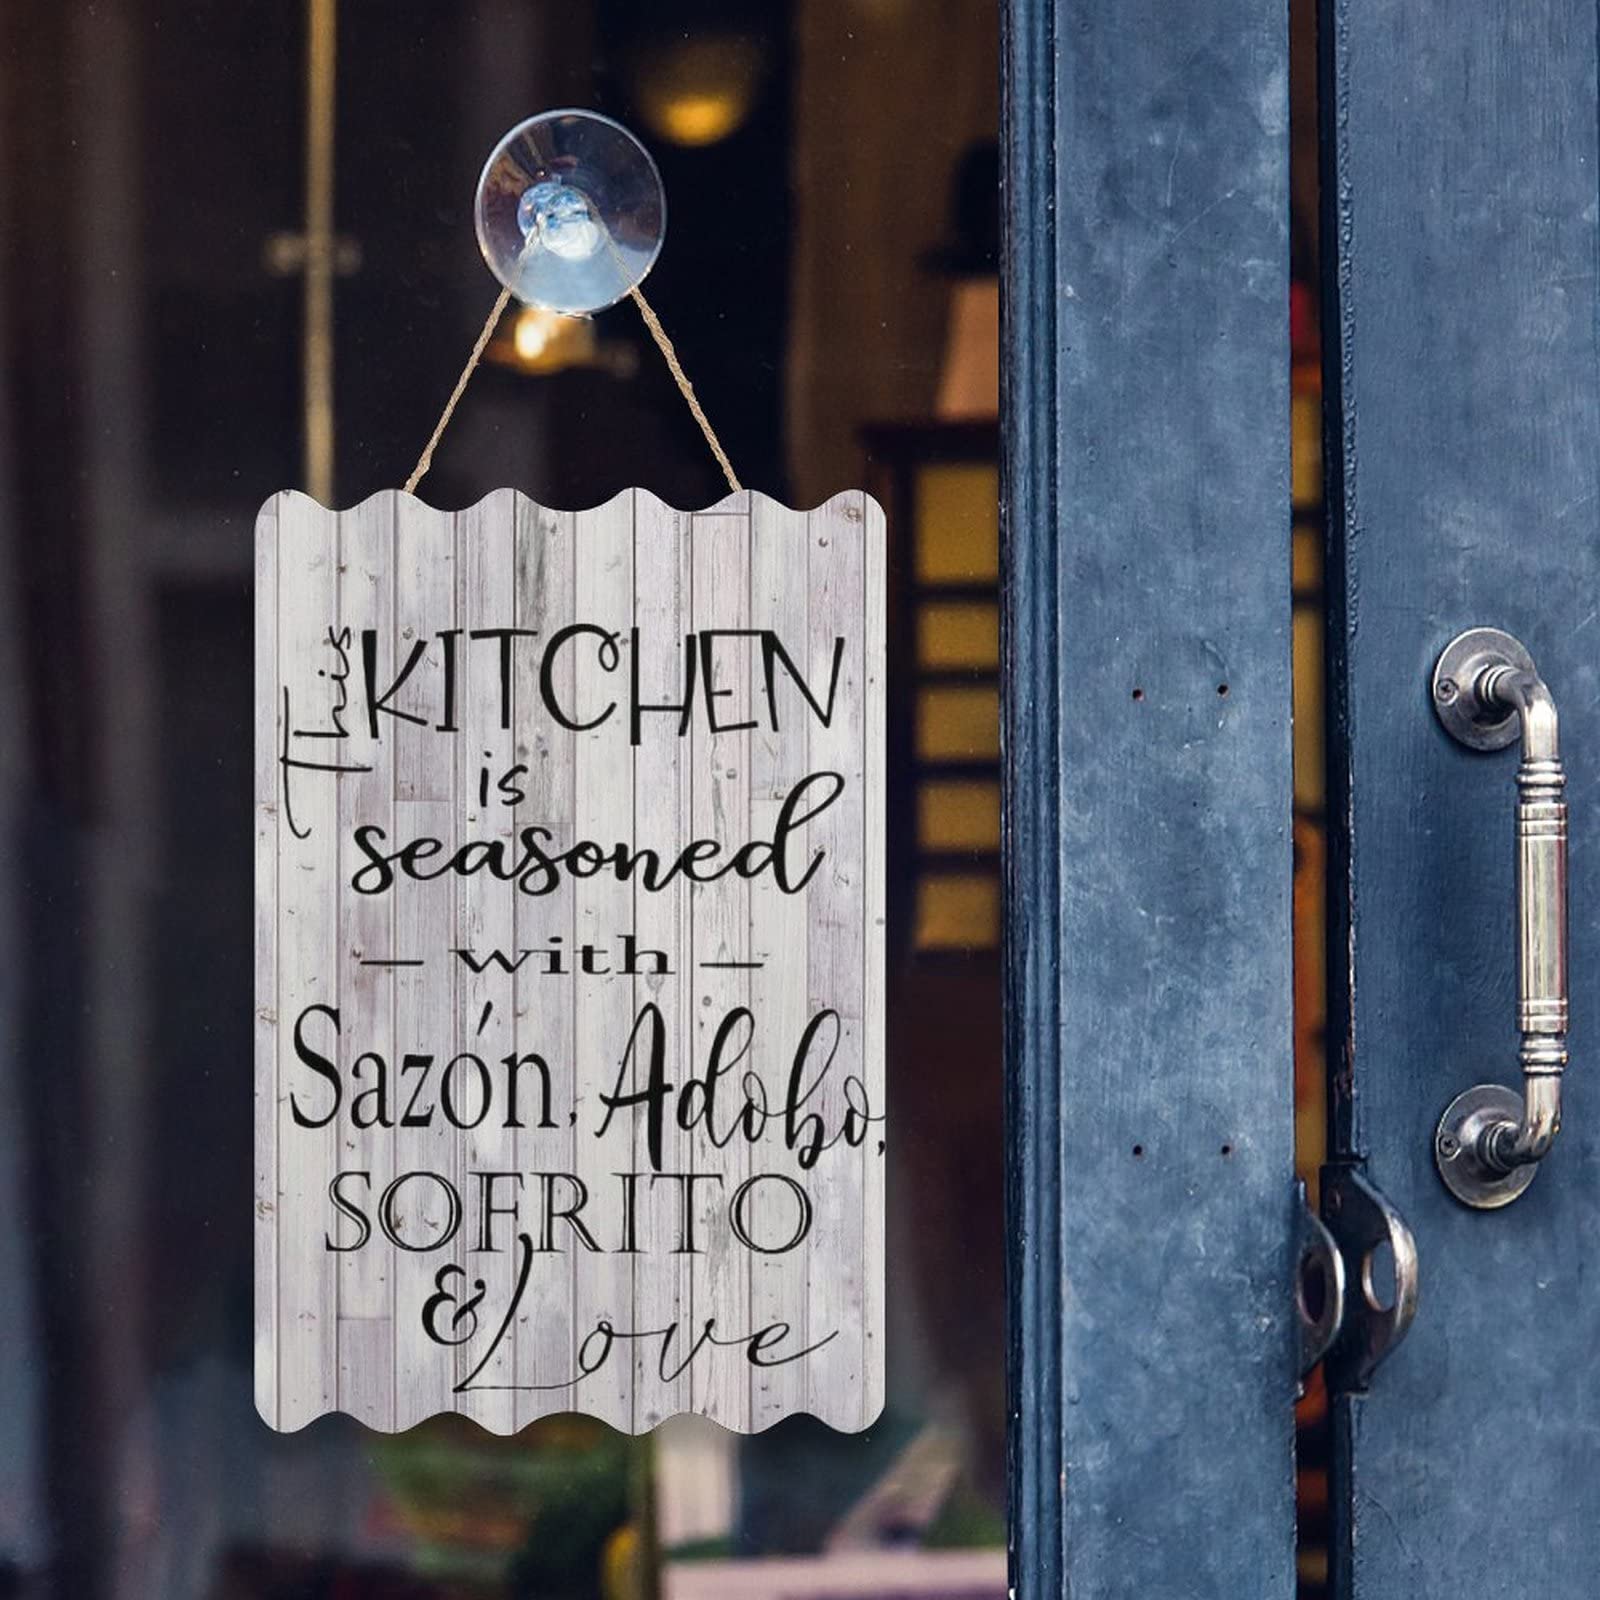 This KITCHEN
is
seasoned
– with –
Sazón, Adobo,
SOFRITO
& Love